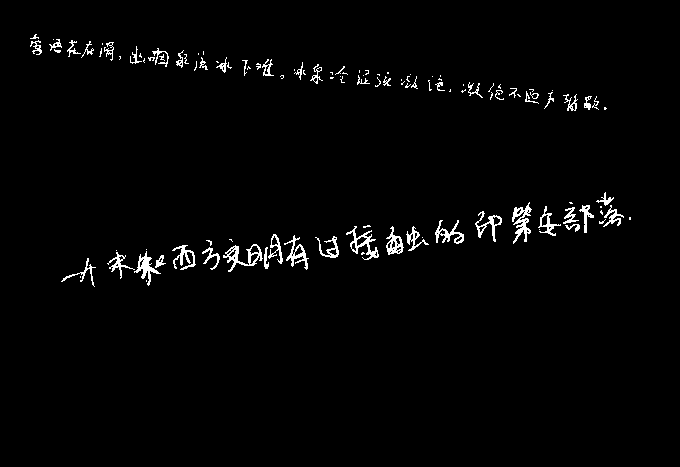 莺语花底滑，幽咽泉流冰下难。冰泉冷涩弦凝绝，凝绝不通声暂歇。
一个未和西方文明有过接触的印第安部落.